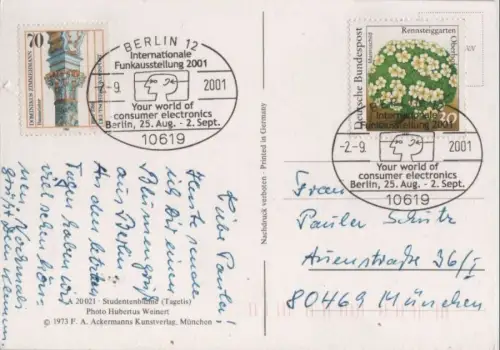 70
DOMINIKUS ZIMMERMANN
BERLIN 12
Internationale
Funkausstellung 2001
-2.-9. 2001
Your world of
consumer electronics
Berlin, 25. Aug. - 2. Sept.
10619
Deutsche Bundespost
Rennsteiggarten
Oberhof
20
Internationale
Funkausstellung 2001
-2.-9. 2001
Your world of
consumer electronics
Berlin, 25. Aug. - 2. Sept.
10619
Liebe Paula!
Heute sende
ich Dir einen
Blumengruß
aus Berlin
An den letzten
Tagen haben wir
viel sehen kön-
nen. Nochmals
grüßt Dein
20021 · Studentenblume (Tagetis)
Photo Hubertus Weinert
© 1973 F. A. Ackermanns Kunstverlag, München
Nachdruck verboten Printed in Germany
Frau
Paula Schütz
Auenstraße 36/I
80469 München